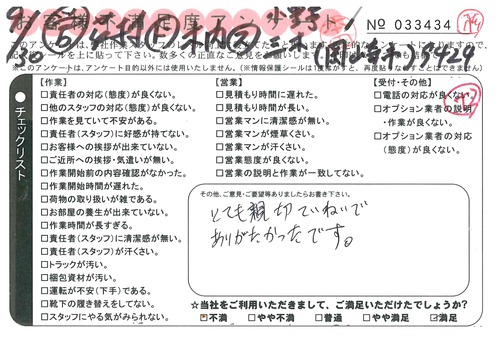 お客様不満足度アンケート
No 033434
【作業】
□責任者の対応(態度)が良くない。
□他のスタッフの対応(態度)が良くない。
□作業を見ていて不安がある。
□責任者(スタッフ)に好感が持てない。
□お客様への挨拶が出来ていない。
□ご近所への挨拶・気遣いが無い。
□作業開始前の内容確認がなかった。
□作業開始時間が遅れた。
□荷物の取り扱いが雑である。
□お部屋の養生が出来ていない。
□作業時間が長すぎる。
□責任者(スタッフ)に清潔感が無い。
□責任者(スタッフ)が汗くさい。
□トラックが汚い。
□梱包資材が汚い。
□運転が不安(下手)である。
□靴下の履き替えをしてない。
□スタッフにやる気がみられない。
【営業】
□見積もり時間に遅れた。
□見積もり時間が長い。
□営業マンに清潔感が無い。
□営業マンが煙草くさい。
□営業マンが汗くさい。
□営業態度が良くない。
□営業の説明と作業が一致してない。
【受付・その他】
□電話の対応が良くない。
□オプション業者の説明
・作業が良くない。
□オプション業者の対応
(態度)が良くない。
チェックリスト
その他、ご意見・ご要望等ありましたらお書き下さい。
とても親切ていねいで
ありがたかったです。
☆当社をご利用いただきまして、ご満足いただけたでしょうか?
□不満 □やや不満 □普通 □やや満足 ☑満足